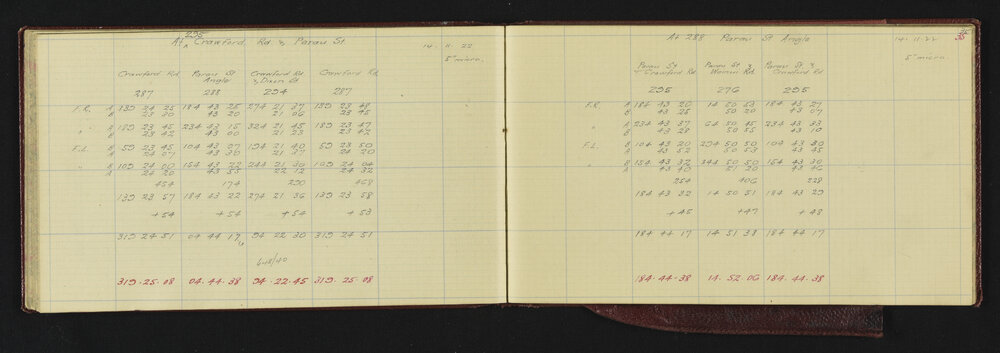 295
At ^ Crawford Rd & Parau St.
14. 11. 22
5" micro.
Crawford Rd. Parau St Angle Crawford Rd & Dixon St Crawford Rd
287 288 294 287
F.R. A 139 24 25 184 43 25 274 21 37 139 23 48
B 23 30 43 20 21 06 23 45
" A 189 23 45 234 43 15 324 21 45 189 23 47
B 23 42 43 00 21 23 23 42
F.L. B 59 23 45 104 43 27 194 21 40 59 23 50
A 24 07 43 30 21 37 24 20
" B 109 24 00 154 43 22 244 21 30 109 24 04
A 24 20 43 35 22 12 24 32
454 174 290 468
139 23 57 184 43 22 274 21 36 139 23 58
+54 +54 +54 +53
319 24 51 04 44 17 94 22 30 319 24 51
648/40
319. 25. 08 04. 44. 38 94. 22. 45 319. 25. 08
35
At 288 Parau St Angle
14. 11. 22
5" micro.
Parau St & Crawford Rd Parau St & Wainui Rd. Parau St & Crawford Rd
295 276 295
F.R. A 184 43 20 14 50 53 184 43 27
B 43 25 50 20 43 07
" A 234 43 37 64 50 45 234 43 33
B 43 28 50 55 43 10
F.L. B 104 43 20 294 50 50 104 43 30
A 43 52 50 53 43 45
" B 154 43 32 344 50 50 154 43 30
A 43 40 51 20 43 46
254 406 228
184 43 32 14 50 51 184 43 29
+45 +47 +48
184 44 17 14 51 38 184 44 17
184. 44. 38 14. 52. 06 184. 44. 38